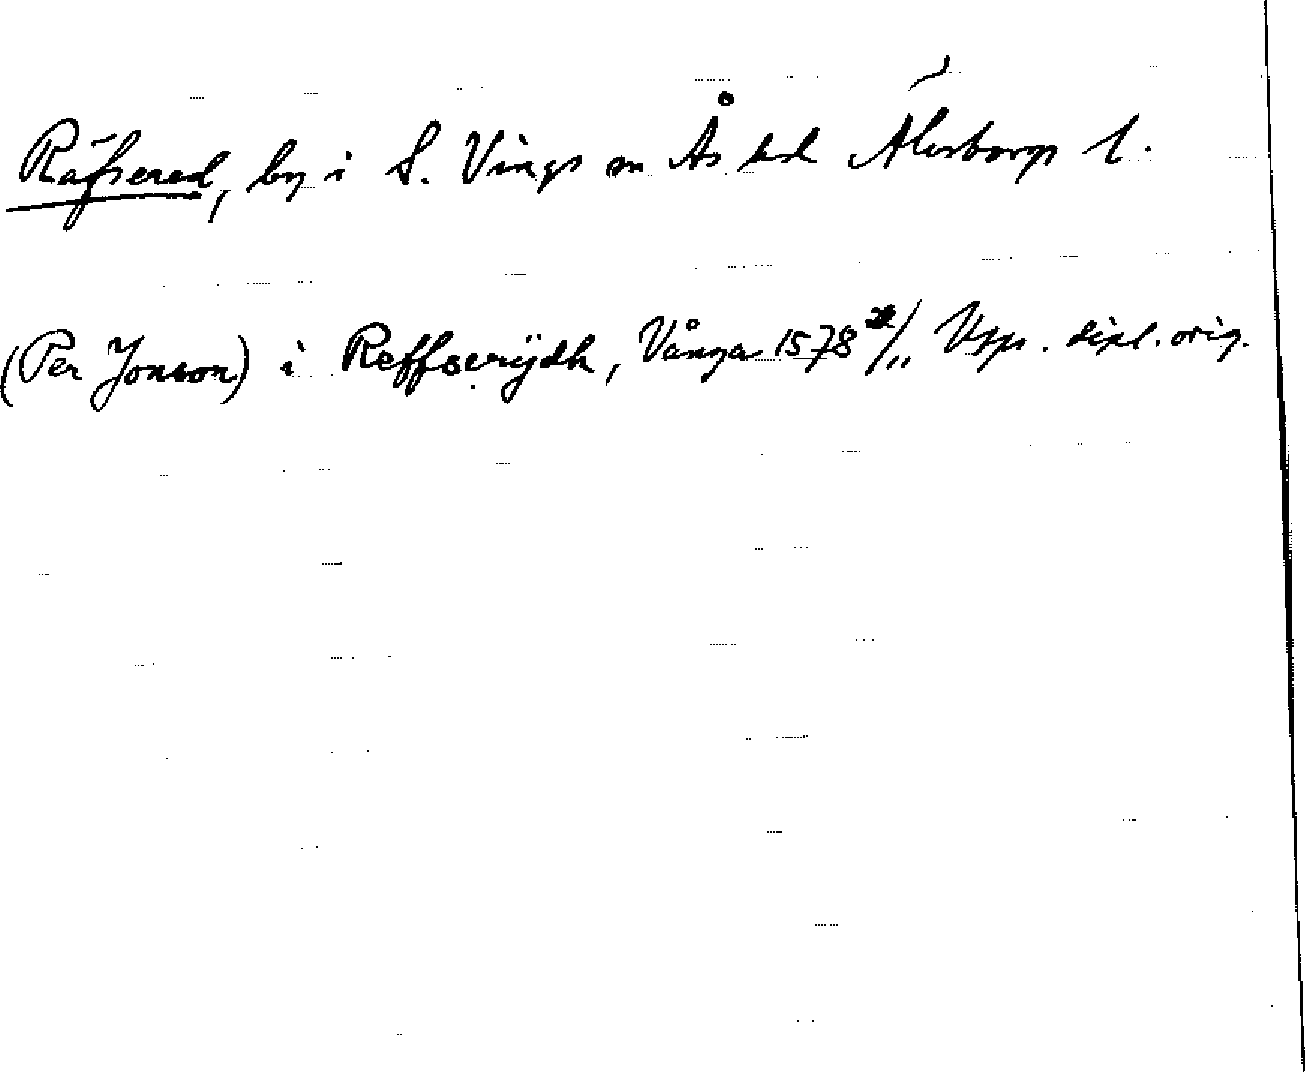 Räfsered, by i S. Vings sn Ås hd Älvsborgs l.
(Per Jonson) i Reffserÿdh, Vånga 1578 /11 Upps. dipl. orig.